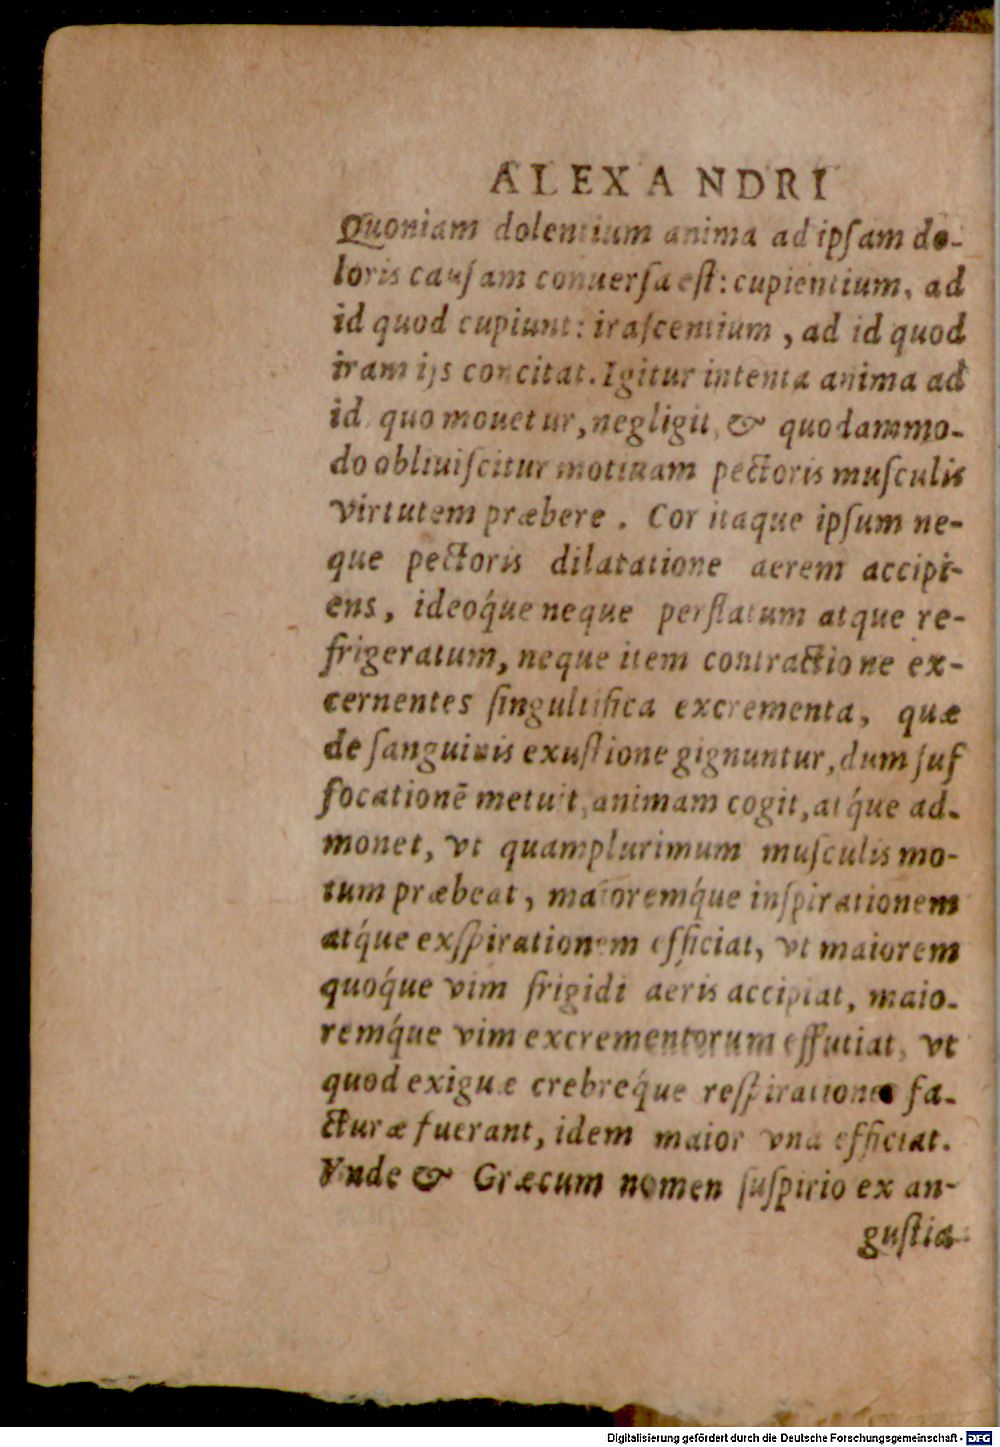 ALEXANDRI
Quoniam dolentium anima ad ipſam do-
loris cauſam conuerſa eſt: cupientium, ad
id quod cupiunt: iraſcentium, ad id quod
iram ijs concitat. Igitur intenta anima ad
id quo mouetur, negligit, & quodammo-
do obliuiſcitur motiuam pectoris muſculis
virtutem præbere. Cor itaque ipſum ne-
que pectoris dilatatione aerem accipi-
ens, ideoq́ue neque perflatum atque re-
frigeratum, neque item contractione ex-
cernentes ſingultifica excrementa, quæ
de ſanguinis exuſtione gignuntur, dum ſuf
focationē metuit, animam cogit, atq́ue ad-
monet, vt quamplurimum muſculis mo-
tum præbeat, maioremq́ue inſpirationem
atq́ue exſpirationem efficiat, vt maiorem
quoq́ue vim frigidi aeris accipiat, maio-
remq́ue vim excrementorum effutiat, vt
quod exiguæ crebreq́ue reſpirationes fa-
cturæ fuerant, idem maior vna efficiat.
Vnde & Græcum nomen ſuſpirio ex an-
guſtia
Digitalisierung gefördert durch die Deutsche Forschungsgemeinschaft - DFG